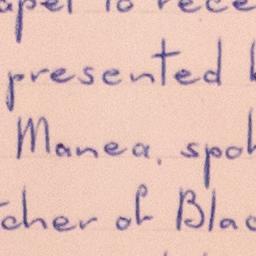 apel to rece
presented
Manea. spok
cher of Blac